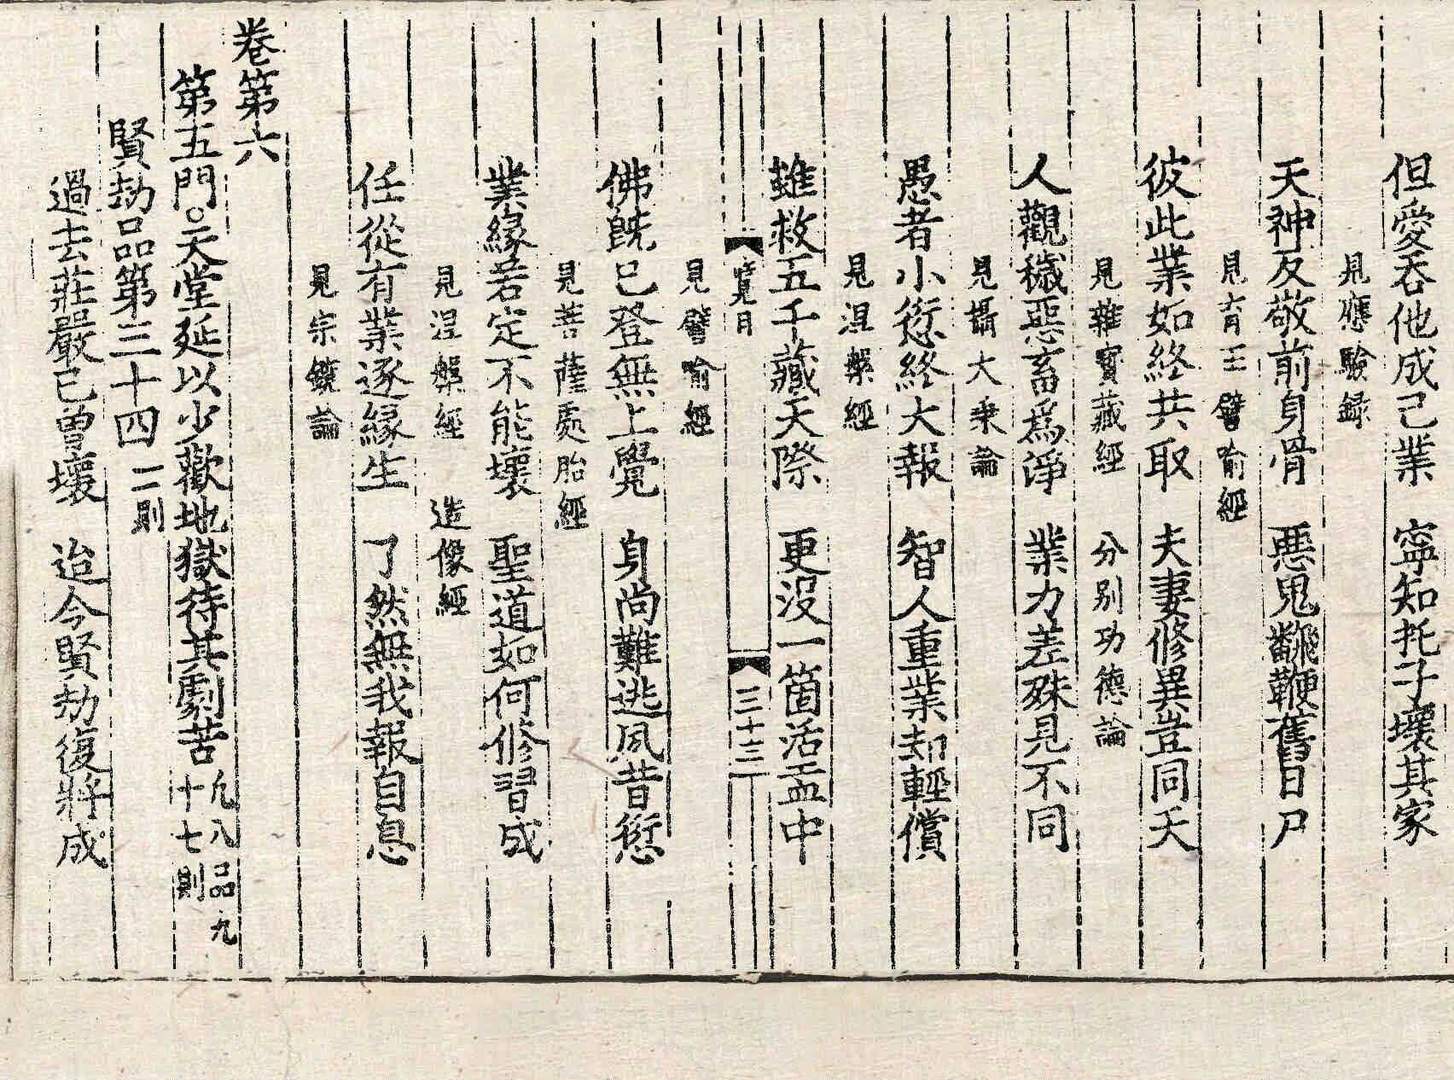 但愛吞他成己業　寧知托子壞其家
見應驗録
天神反敬前身骨　惡鬼翻鞭舊日尸
見育王譬喻經
彼此業如終共取　夫妻修異豈同天
見雜寶藏經　分别功德論
人觀穢惡畜為淨　業力差殊見不同
見攝大乘論
愚者小愆終大報　智人重業却輕償
見涅槃經
雖救五千藏天際　更没一箇活盂中
三十三
見譬喻經
佛既已登無上覺　身尚難逃夙昔愆
見菩薩處胎經
業緣若定不能壞　聖道如何修習成
見涅槃經　造像經
任從有業逐緣生　了然無我報自息
見宗鏡論
卷第六
第五門○天堂延以少歡地獄待其劇苦 凡八品九十七則
賢劫品第三十四 二則
過去莊嚴已曾壞　迨今賢劫復將成